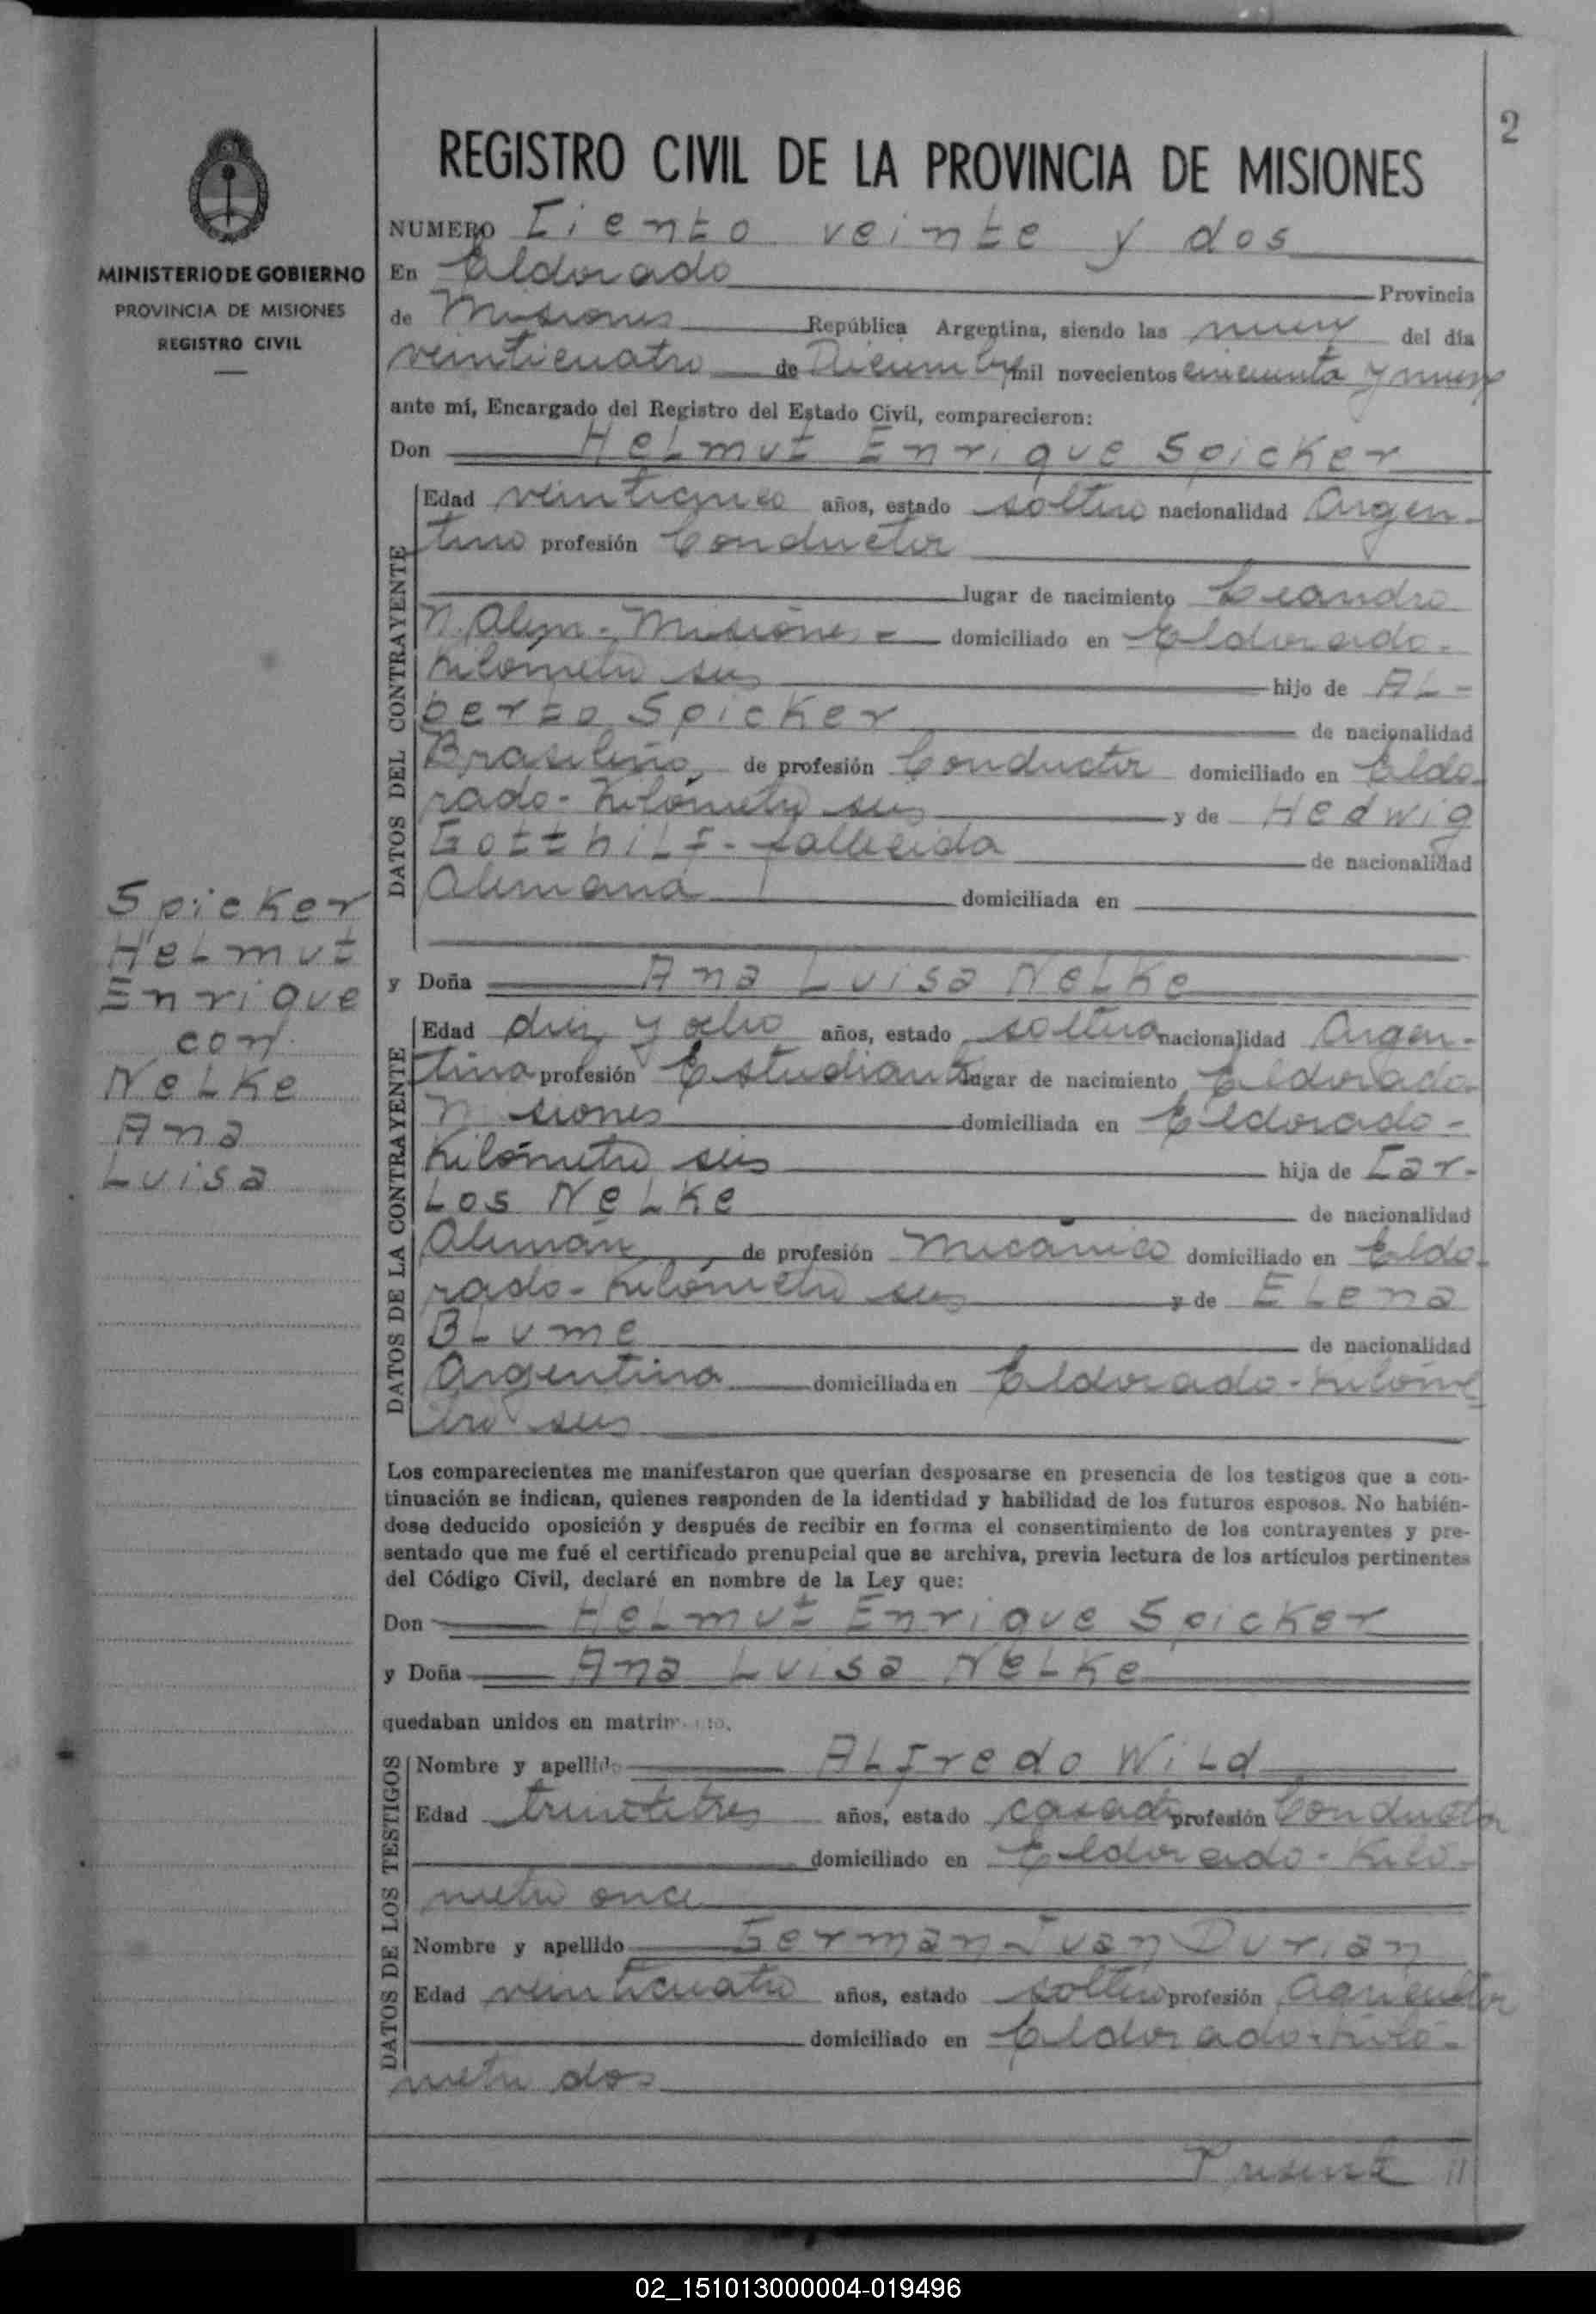 2
REGISTRO CIVIL DE LA PROVINCIA DE MISIONES
MINISTERIO DE GOBIERNO
PROVINCIA DE MISIONES
REGISTRO CIVIL
Spicker
Helmut
Enrique
con
Nelke
Ana
Luisa
NUMERO Ciento veinte y dos
En Eldorado Provincia
de Misiones República Argentina, siendo las nueve del día
veinticuatro de Diciembre mil novecientos cincuenta y nueve
ante mí, Encargado del Registro del Estado Civil, comparecieron:
Don Helmut Enrique Spicker
DATOS DEL CONTRAYENTE
Edad veinticinco años, estado soltero nacionalidad Argen-
tino profesión Conductor
lugar de nacimiento Leandro
N. Alem - Misiones - domiciliado en Eldorado -
Kilómetro seis hijo de Al-
berto Spicker de nacionalidad
Brasileño, de profesión Conductor domiciliado en Eldo-
rado - Kilómetro seis y de Hedwig
Gotthilf - fallecida de nacionalidad
Alemana domiciliada en
y Doña Ana Luisa Nelke
DATOS DE LA CONTRAYENTE
Edad diez y ocho años, estado soltera nacionalidad Argen-
tina profesión Estudiante lugar de nacimiento Eldorado-
Misiones domiciliada en Eldorado -
Kilómetro seis hija de Car-
los Nelke de nacionalidad
Alemán, de profesión Mecánico domiciliado en Eldo-
rado - Kilómetro seis y de Elena
Blume de nacionalidad
Argentina domiciliada en Eldorado - Kilóme
tro seis
Los comparecientes me manifestaron que querían desposarse en presencia de los testigos que a con-
tinuación se indican, quienes responden de la identidad y habilidad de los futuros esposos. No habién-
dose deducido oposición y después de recibir en forma el consentimiento de los contrayentes y pre-
sentado que me fué el certificado prenupcial que se archiva, previa lectura de los artículos pertinentes
del Código Civil, declaré en nombre de la Ley que:
Don Helmut Enrique Spicker
y Doña Ana Luisa Nelke
quedaban unidos en matrimonio.
DATOS DE LOS TESTIGOS
Nombre y apellido Alfredo Wild
Edad treintitres años, estado casado profesión Conductor
domiciliado en Eldorado - Kiló-
metro once
Nombre y apellido German Juan Durian
Edad veinticuatro años, estado soltero profesión Agricultor
domiciliado en Eldorado - Kiló-
metro dos
Presente //
02_151013000004-019496